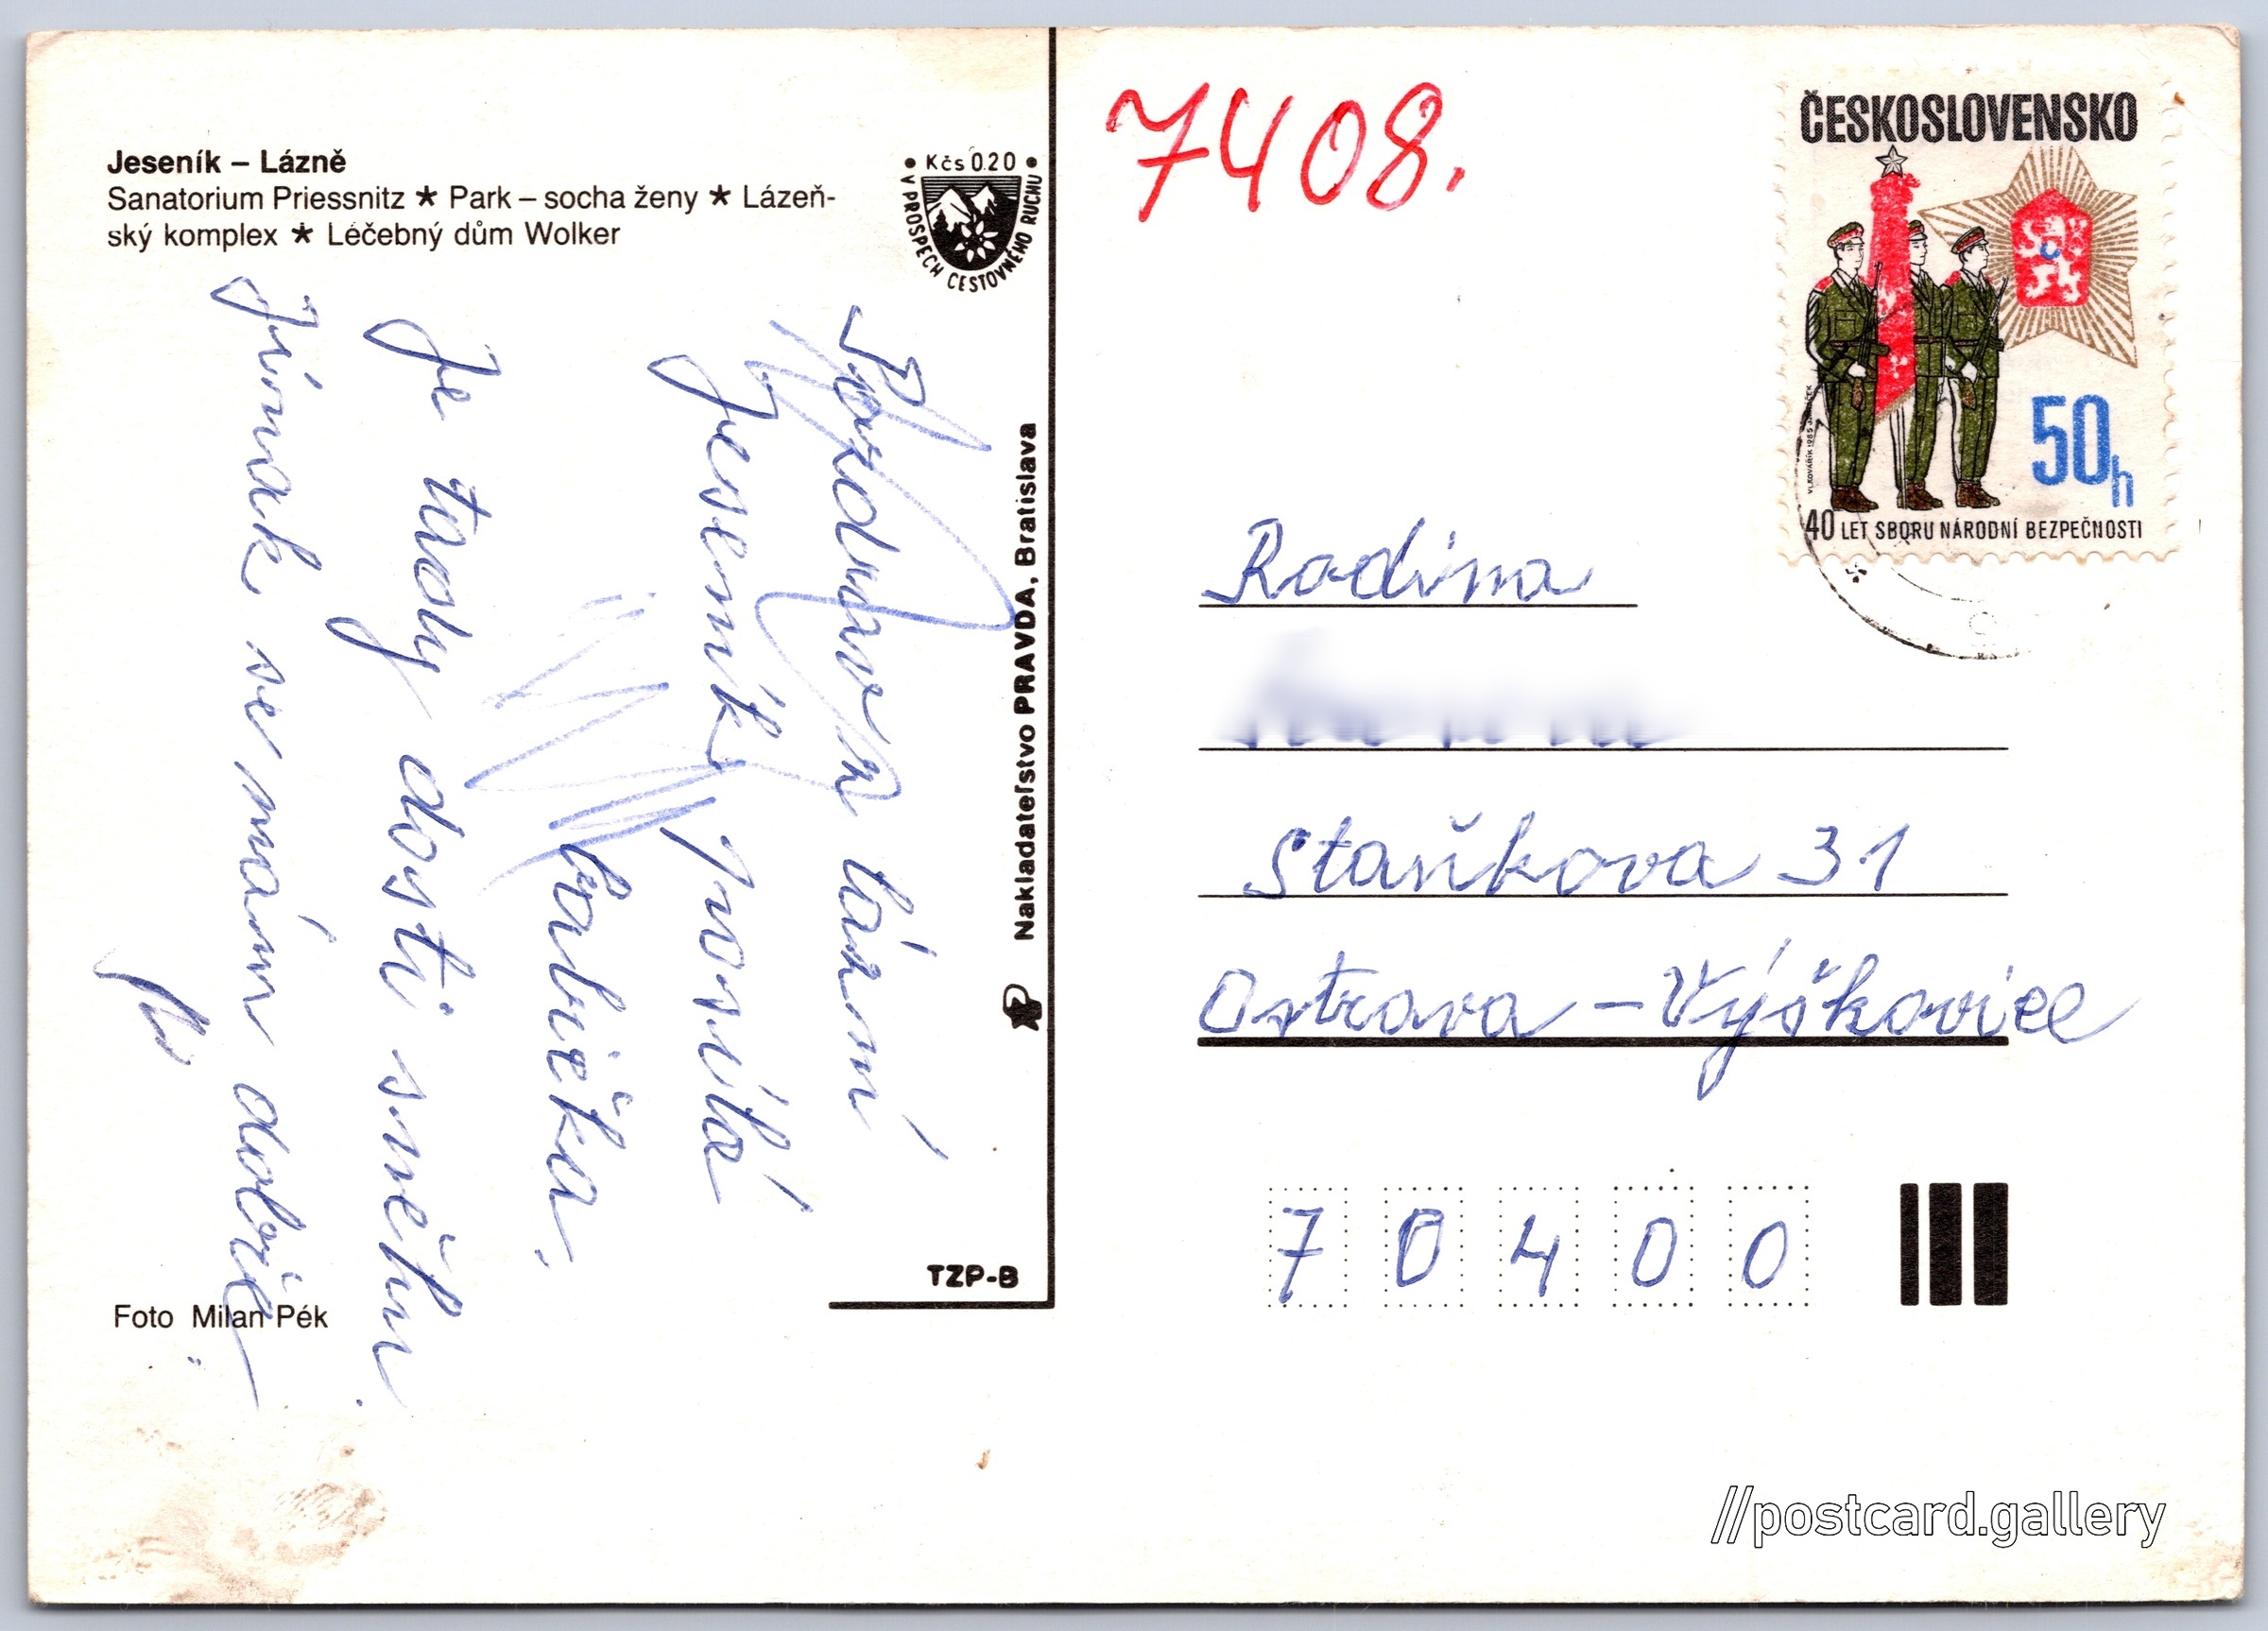 Jeseník – Lázně
Sanatorium Priessnitz ★ Park – socha ženy ★ Lázeň-
ský komplex ★ Léčebný dům Wolker
• Kčs 0.20 •
V PROSPĚCH CESTOVNÉHO RUCHU
Pozdrav z lázní
Jeseník posílá
babička,
Je tady dosti sněhu
jinak se mám dobře
Nakladateľstvo PRAVDA, Bratislava
TZP-B
Foto Milan Pék
7408.
ČESKOSLOVENSKO
50h
40 LET SBORU NÁRODNÍ BEZPEČNOSTI
Rodina
Staňkova 31
Ostrava – Výškovice
70400
//postcard.gallery